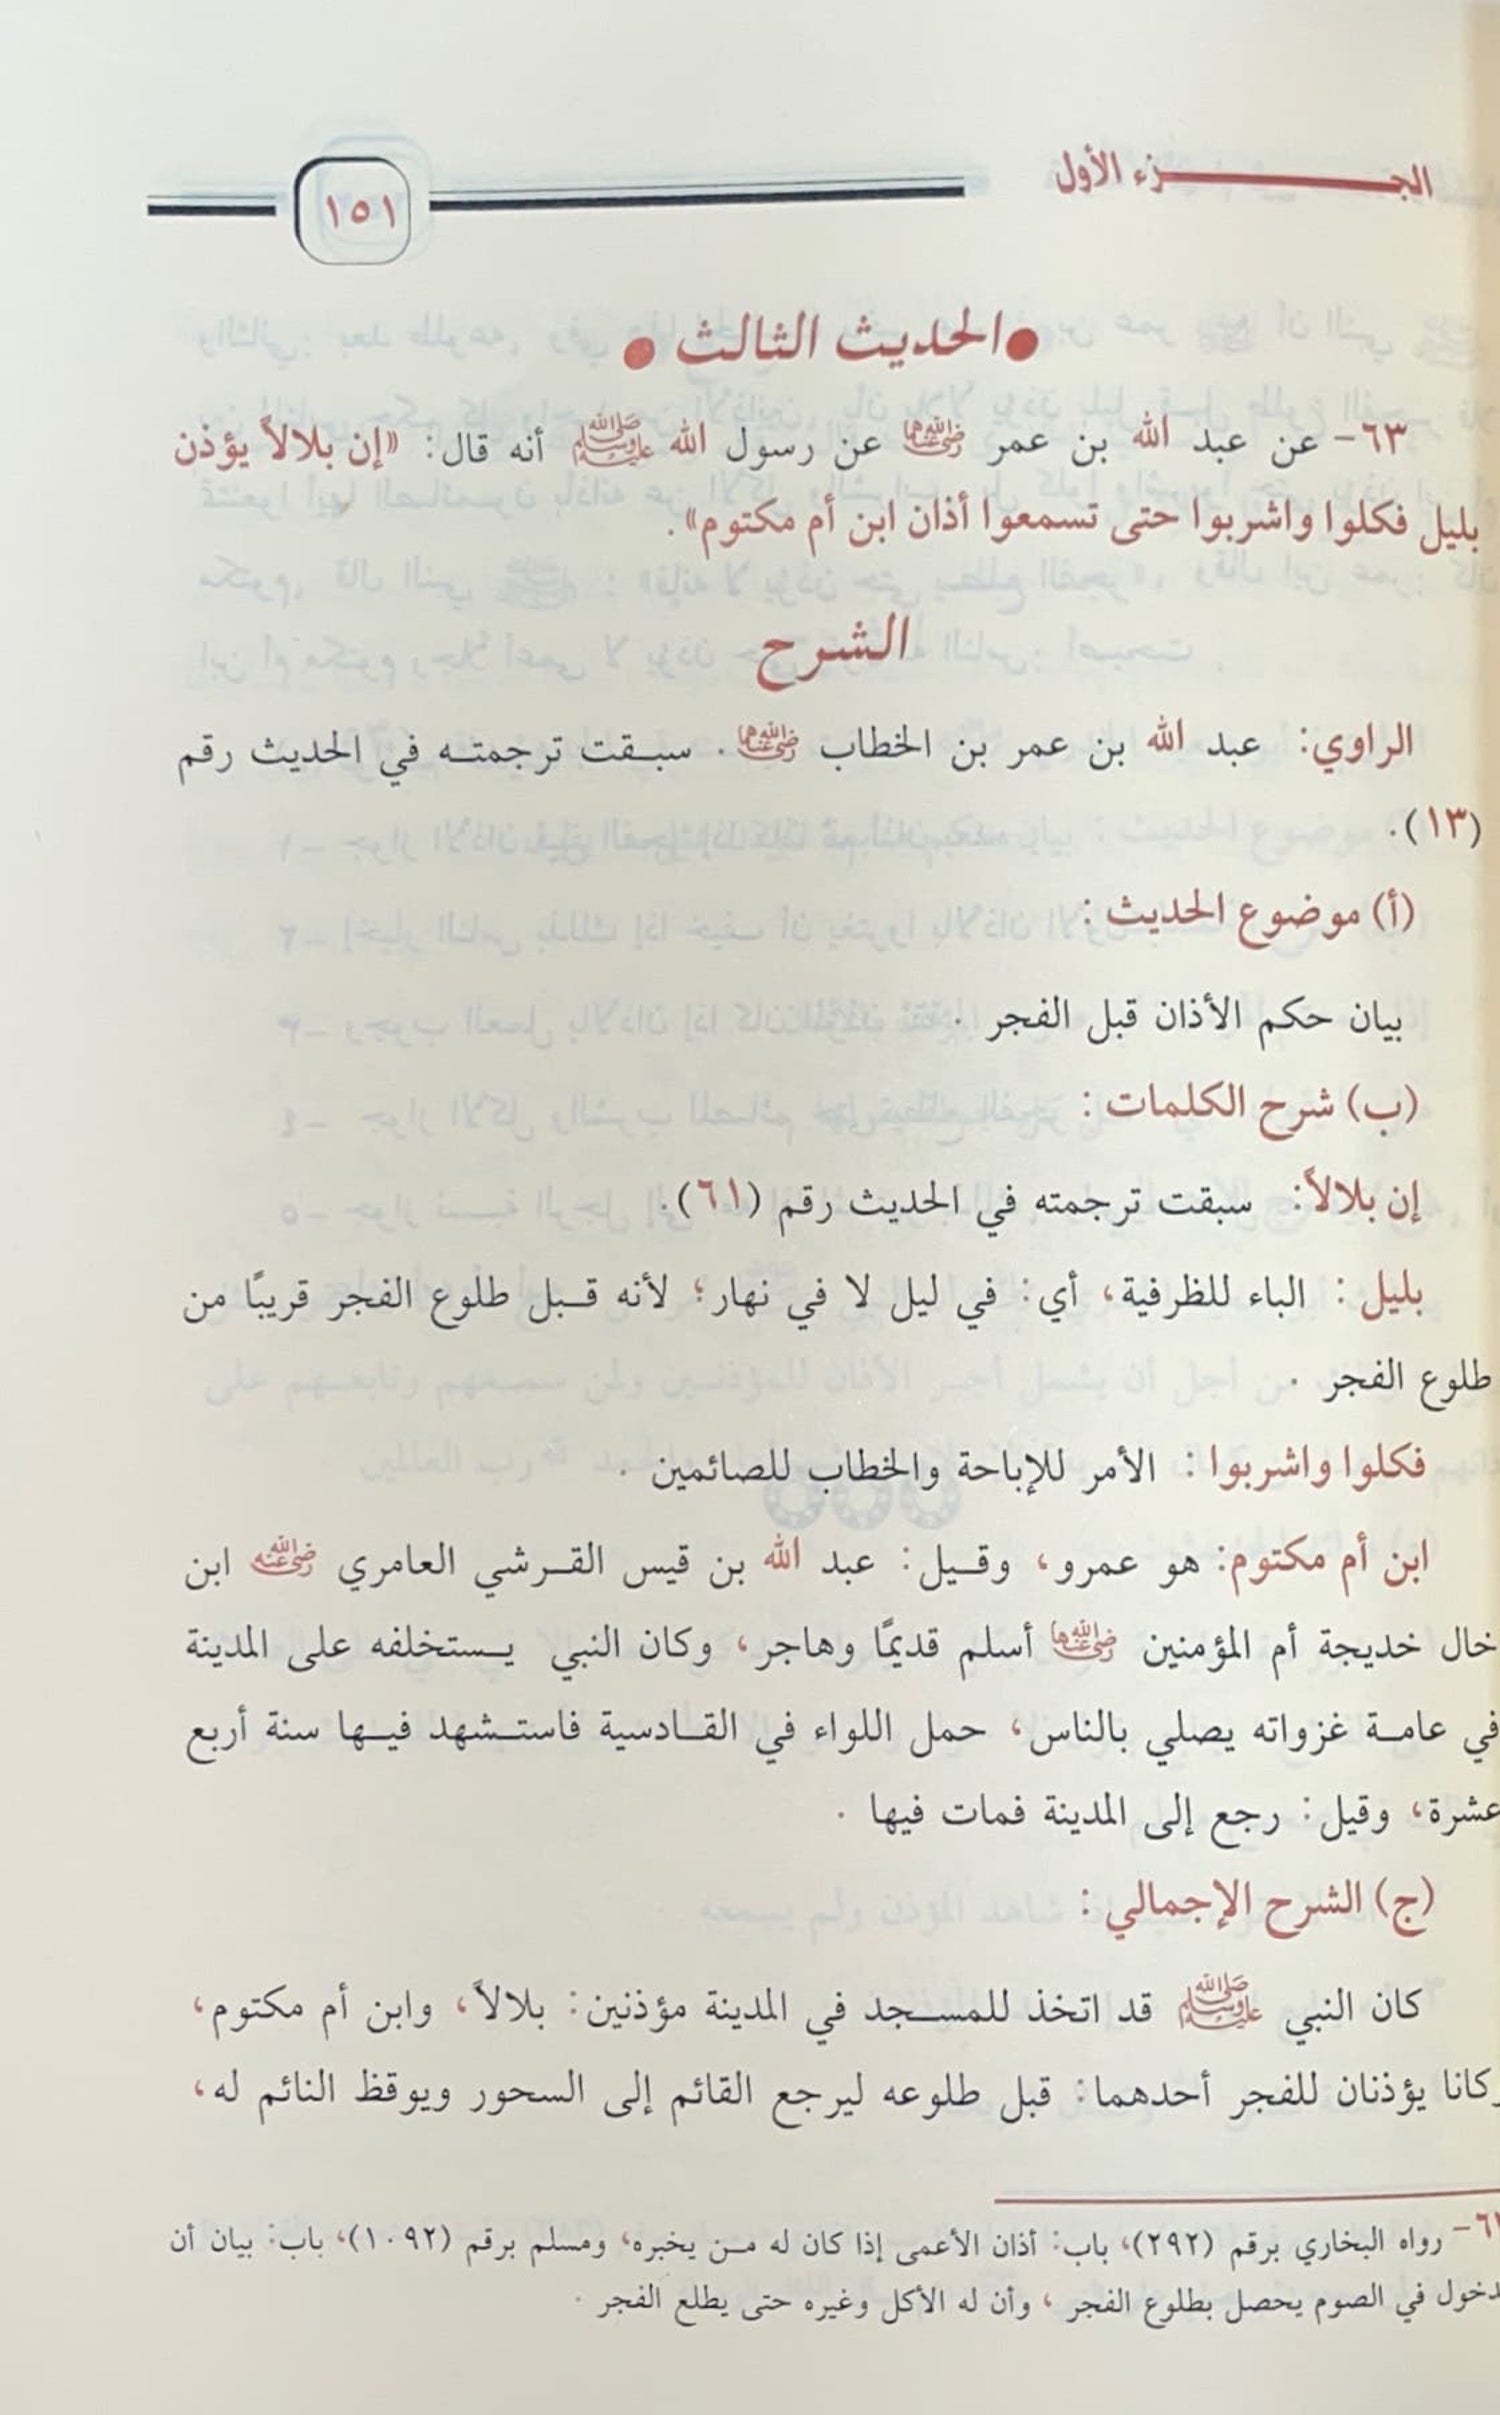 الجزء الأول
١٥١
الحديث الثالث
٦٣- عن عبد الله بن عمر رضي الله عنهما عن رسول الله ﷺ أنه قال: «إن بلالاً يؤذن
بليل فكلوا واشربوا حتى تسمعوا أذان ابن أم مكتوم».
الشرح
الراوي: عبد الله بن عمر بن الخطاب رضي الله عنهما. سبقت ترجمته في الحديث رقم
(١٣).
(أ) موضوع الحديث:
بيان حكم الأذان قبل الفجر.
(ب) شرح الكلمات:
إن بلالاً: سبقت ترجمته في الحديث رقم (٦١).
بليل: الباء للظرفية، أي: في ليل لا في نهار؛ لأنه قبل طلوع الفجر قريبًا من
طلوع الفجر.
فكلوا واشربوا: الأمر للإباحة والخطاب للصائمين.
ابن أم مكتوم: هو عمرو، وقيل: عبد الله بن قيس القرشي العامري رضي الله عنه ابن
خال خديجة أم المؤمنين رضي الله عنها أسلم قديمًا وهاجر، وكان النبي يستخلفه على المدينة
في عامة غزواته يصلي بالناس، حمل اللواء في القادسية فاستشهد فيها سنة أربع
عشرة، وقيل: رجع إلى المدينة فمات فيها.
(ج) الشرح الإجمالي:
كان النبي ﷺ قد اتخذ للمسجد في المدينة مؤذنين: بلالاً، وابن أم مكتوم،
وكانا يؤذنان للفجر أحدهما: قبل طلوعه ليرجع القائم إلى السحور ويوقظ النائم له،
رواه البخاري برقم (٢٩٢)، باب: أذان الأعمى إذا كان له من يخبره، ومسلم برقم (١٠٩٢)، باب: بيان أن
دخول في الصوم يحصل بطلوع الفجر، وأن له الأكل وغيره حتى يطلع الفجر.